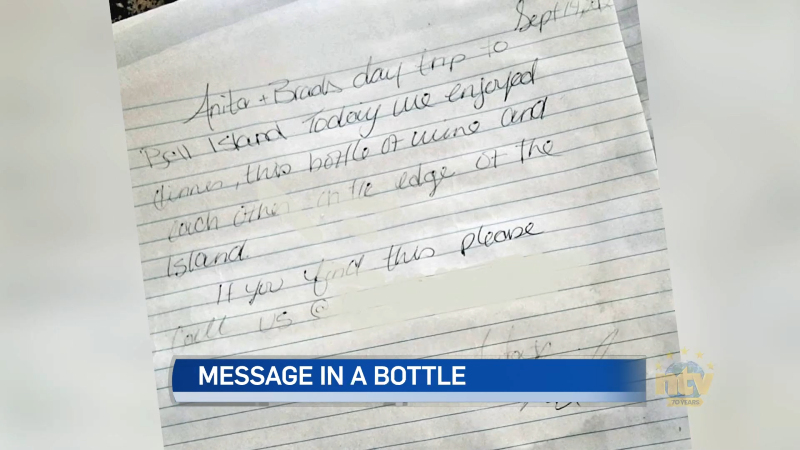 Sept 14, 2012
Anita + Brads day trip to
Bell Island Today we enjoyed
dinner, this bottle of wine and
each other on the edge of the
Island.
If you find this please
call us @
MESSAGE IN A BOTTLE
ntv
70 YEARS